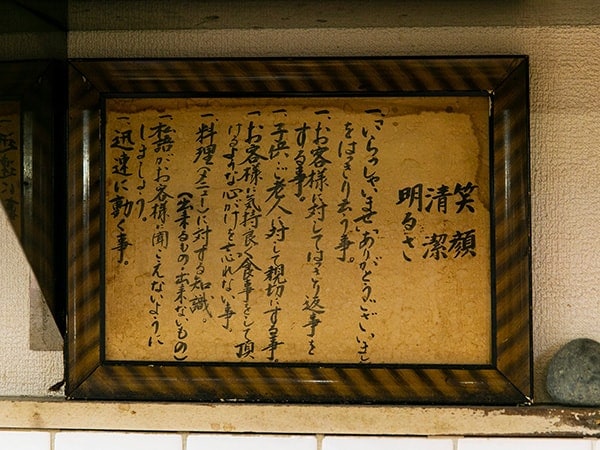 笑顔
清潔
明るさ
一、いらっしゃいませ、ありがとうございまし
をはっきり言う事。
一、お客様に対してはっきり返事を
する事。
一、子供、ご老人に対して親切にする事。
一、お客様に気持良く食事をして頂
けるような心がけを忘れない事。
一、料理(メニュー)に対する知識。
(出来るもの・出来ないもの)
一、私語がお客様に聞こえないように
しましょう。
一、迅速に動く事。